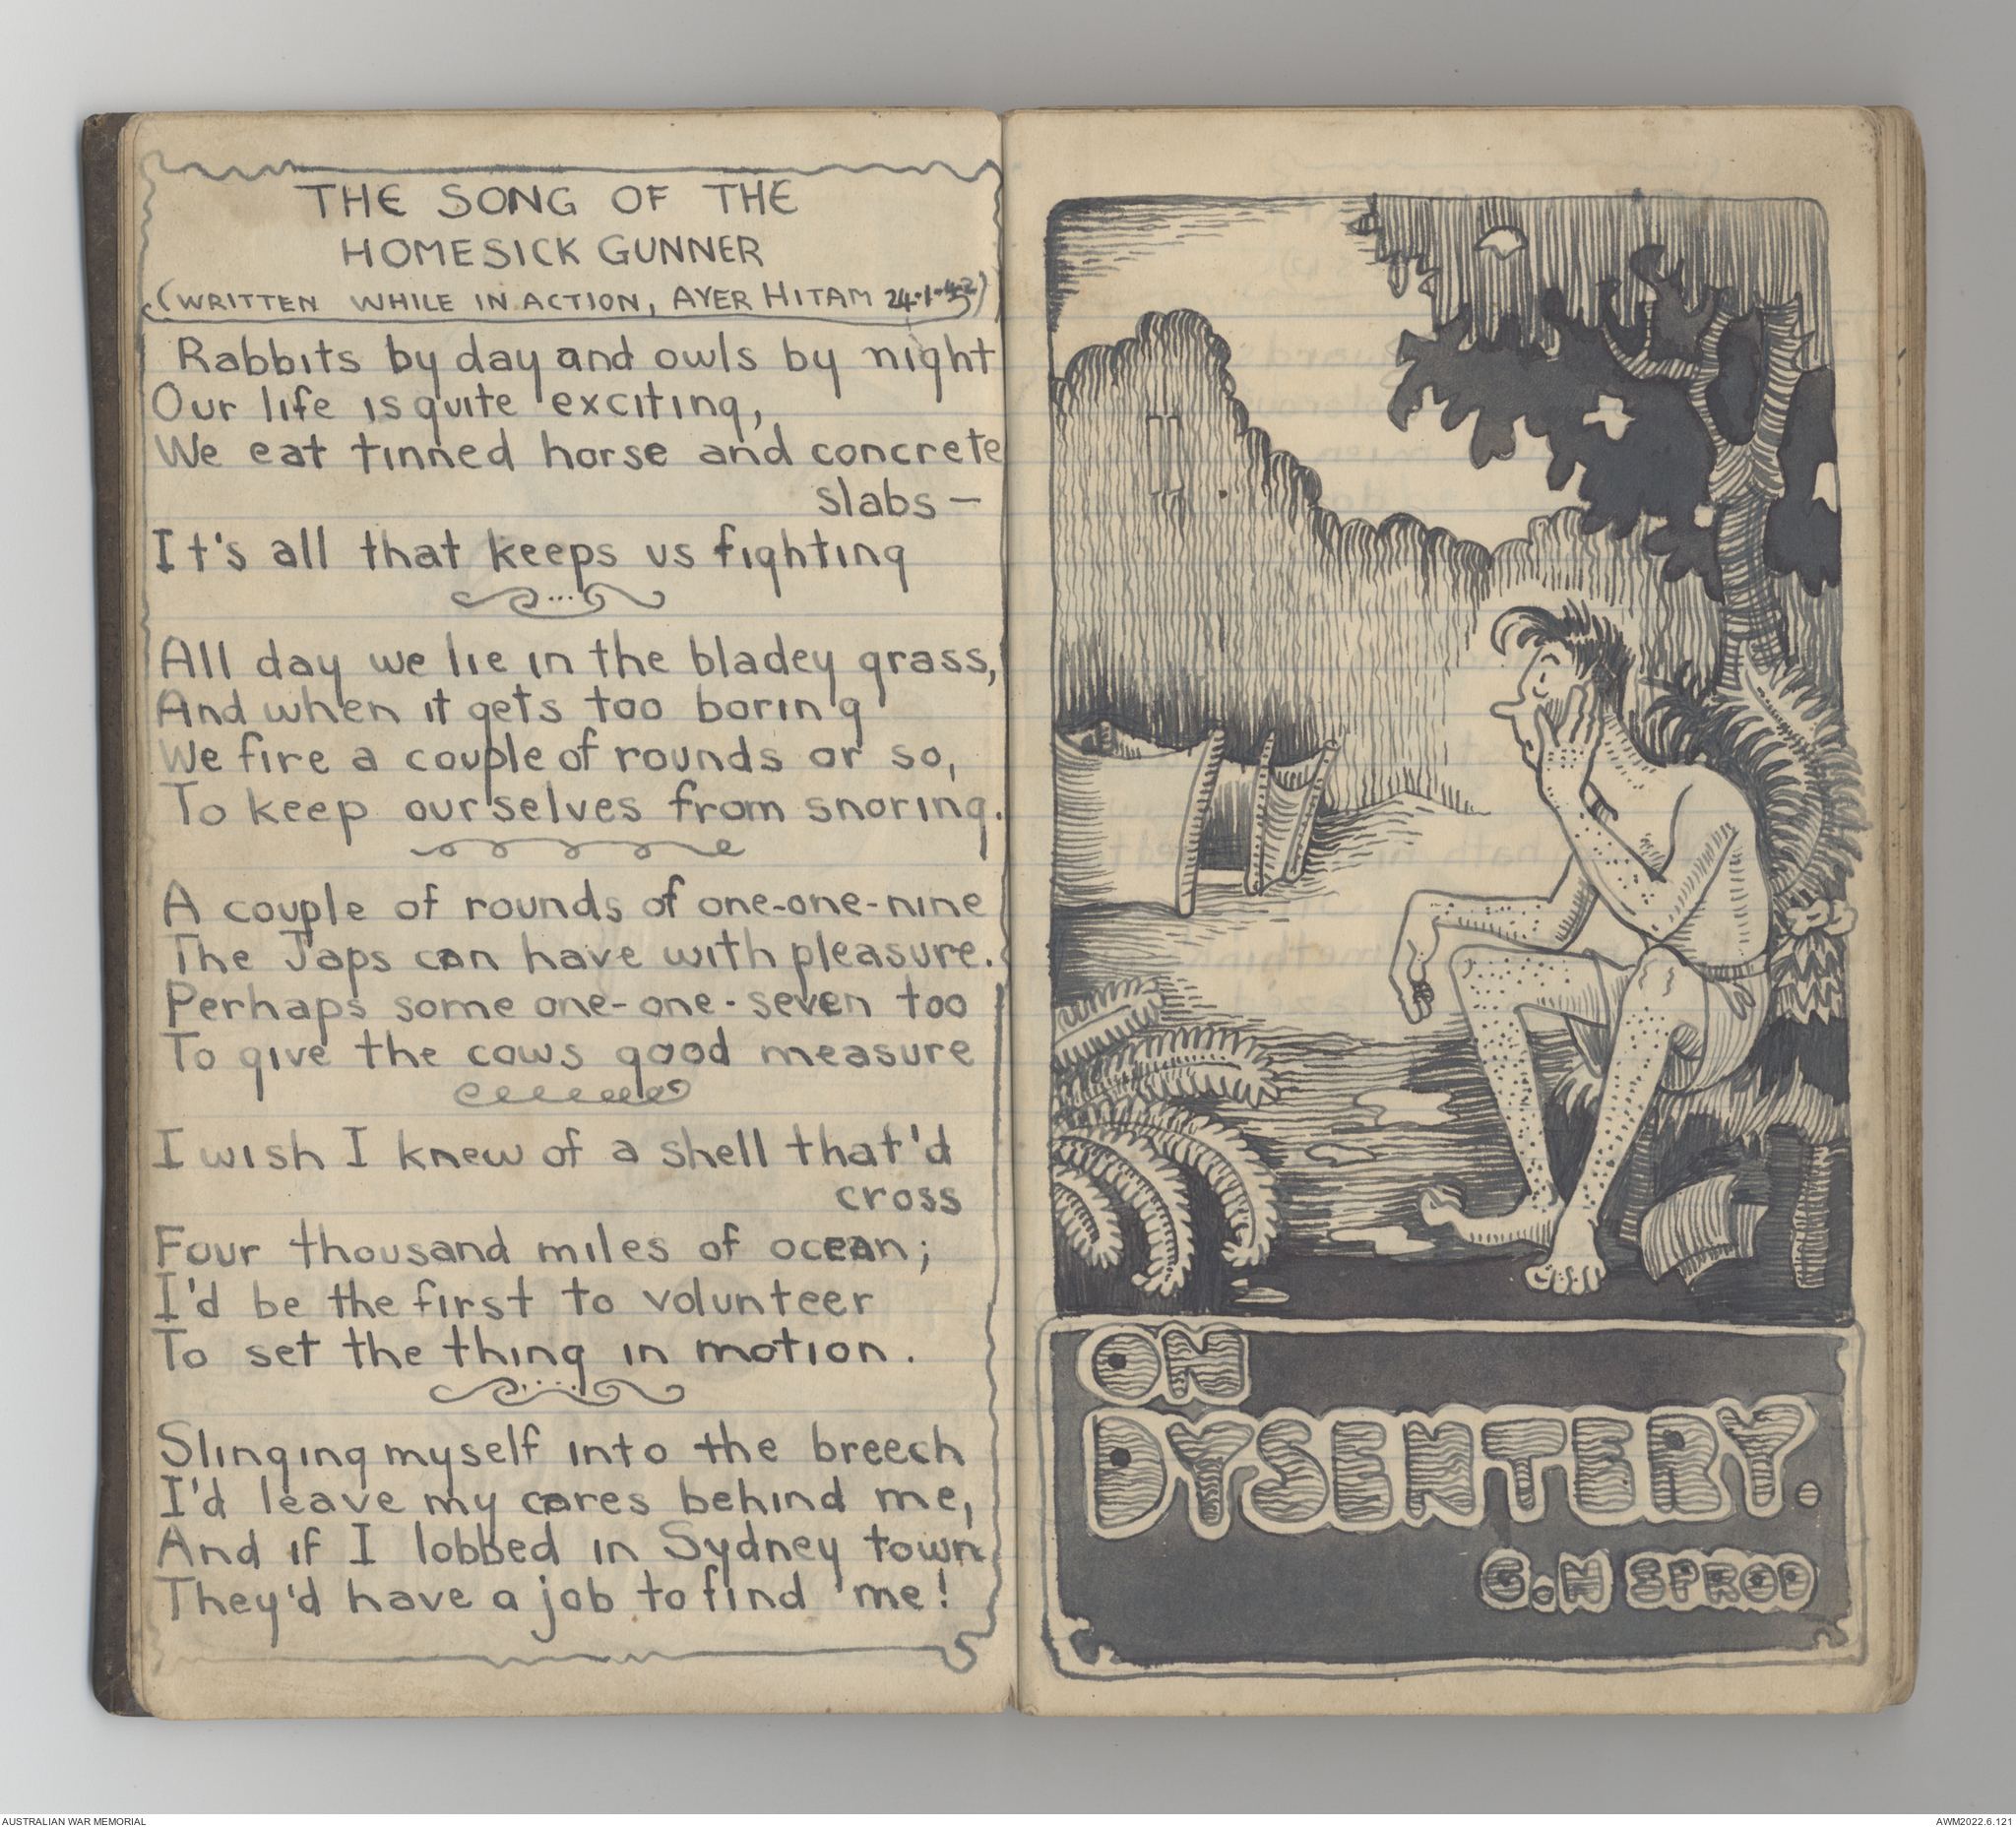 THE SONG OF THE
HOMESICK GUNNER
(WRITTEN WHILE IN ACTION, AYER HITAM 24·1·42)
Rabbits by day and owls by night
Our life is quite exciting,
We eat tinned horse and concrete
slabs —
It's all that keeps us fighting
All day we lie in the bladey grass,
And when it gets too boring
We fire a couple of rounds or so,
To keep ourselves from snoring.
A couple of rounds of one-one-nine
The Japs can have with pleasure.
Perhaps some one-one-seven too
To give the cows good measure
I wish I knew of a shell that'd
cross
Four thousand miles of ocean;
I'd be the first to volunteer
To set the thing in motion.
Slinging myself into the breech
I'd leave my cares behind me,
And if I lobbed in Sydney town
They'd have a job to find me!
ON
DYSENTERY.
G.N SPROD
AUSTRALIAN WAR MEMORIAL
AWM2022.6.121